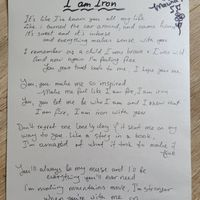 I am Iron
It's like I've known you all my life
Like I turned the car around, and came home
It's sweet and it's unique
and everything makes sense with you
I remember as a child I was brave & I was wild
and now again I'm feeling free
You you make me so inspired
Make me feel like I am fire, I am iron
You, you let me be who I am and I know that
I am fire, I am iron with you
Don't regret one lonely day if it sent me on my
way to you. Like a song in a book.
I'm amazed at what it took to make it
true
You'll always be my muse and I'd be
everything you'll ever need
I'm making mountains move, I'm stronger
when you're with me on